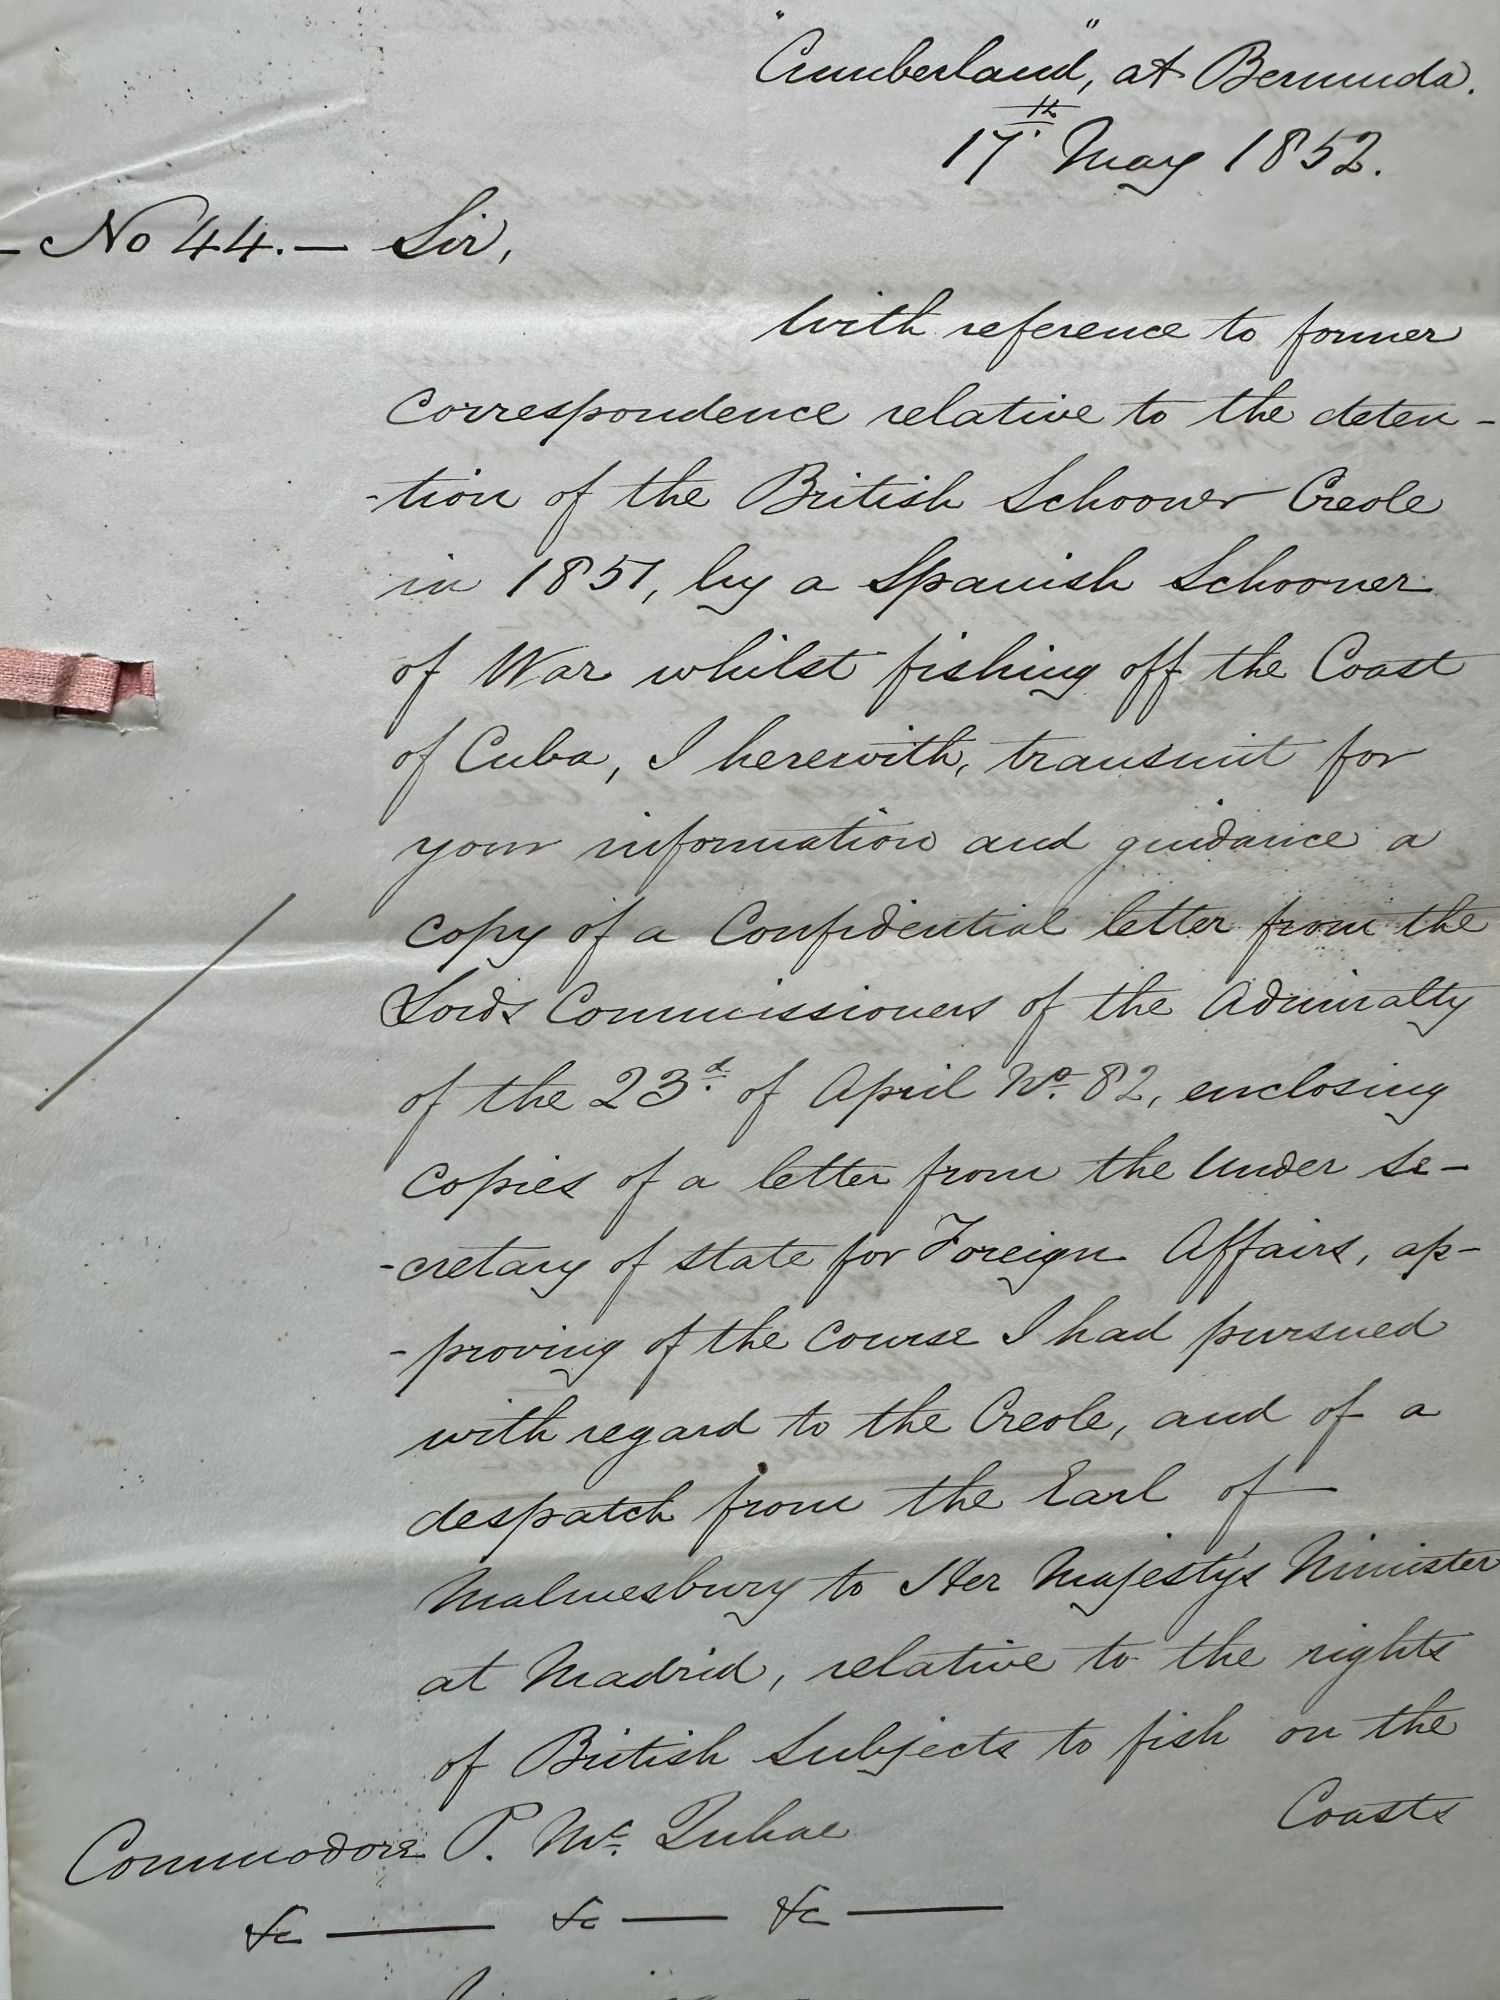 "Cumberland", at Bermuda.
17th. May 1852.
- No 44. - Sir,
With reference to former
Correspondence relative to the deten-
-tion of the British Schooner Creole
in 1851, by a Spanish Schooner
of War whilst fishing off the Coast
of Cuba, I herewith, transmit for
your information and guidance a
copy of a Confidential letter from the
Lords Commissioners of the Admiralty
of the 23d. of April No. 82, enclosing
Copies of a letter from the Under Se-
-cretary of State for Foreign Affairs, ap-
-proving of the course I had pursued
with regard to the Creole, and of a
despatch from the Earl of
Malmesbury to Her Majestys Minister
at Madrid, relative to the rights
of British Subjects to fish on the
Coasts
Commodore P. Mc. Quhae
&c — &c — &c —